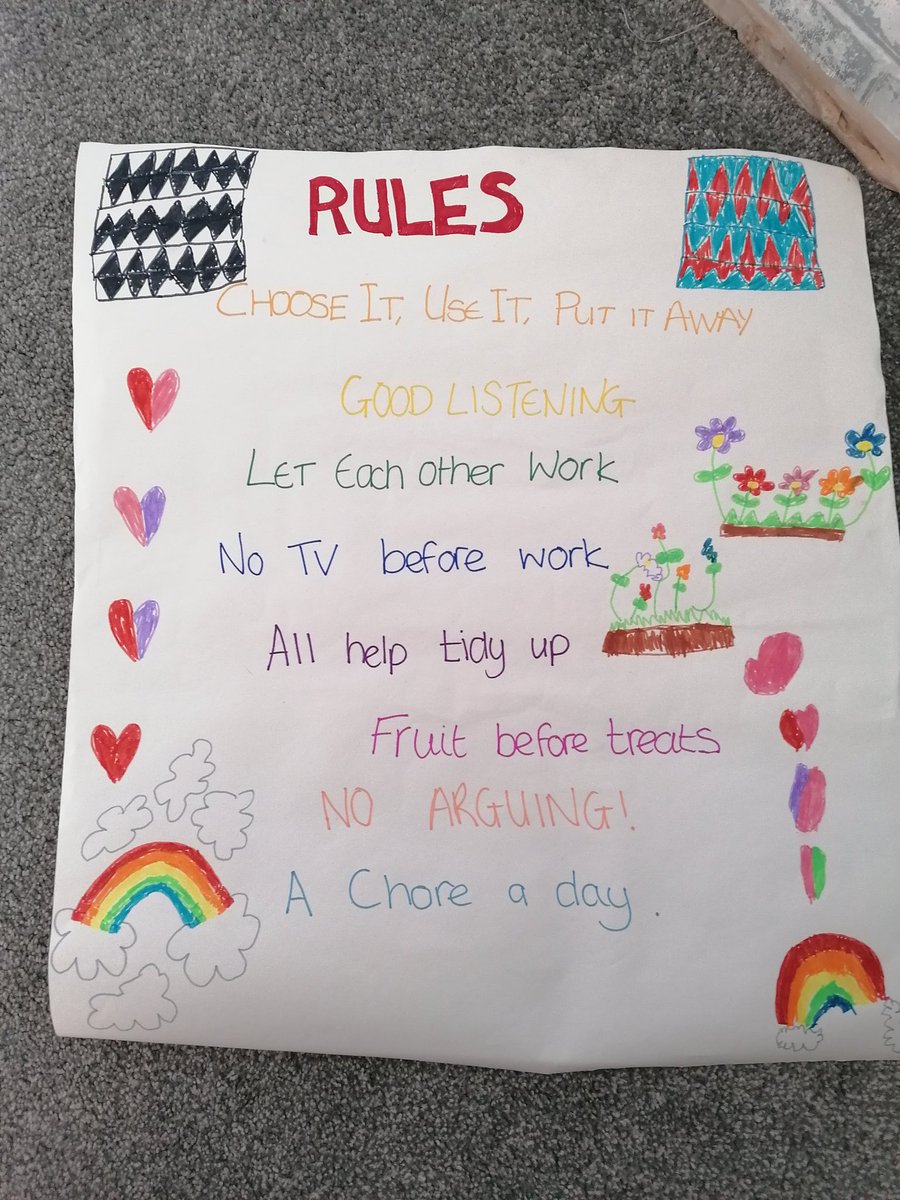 RULES
CHOOSE IT, USE IT, PUT IT AWAY
GOOD LISTENING
LET Each other Work
No TV before work
All help tidy up
Fruit before treats
NO ARGUING!
A Chore a day.